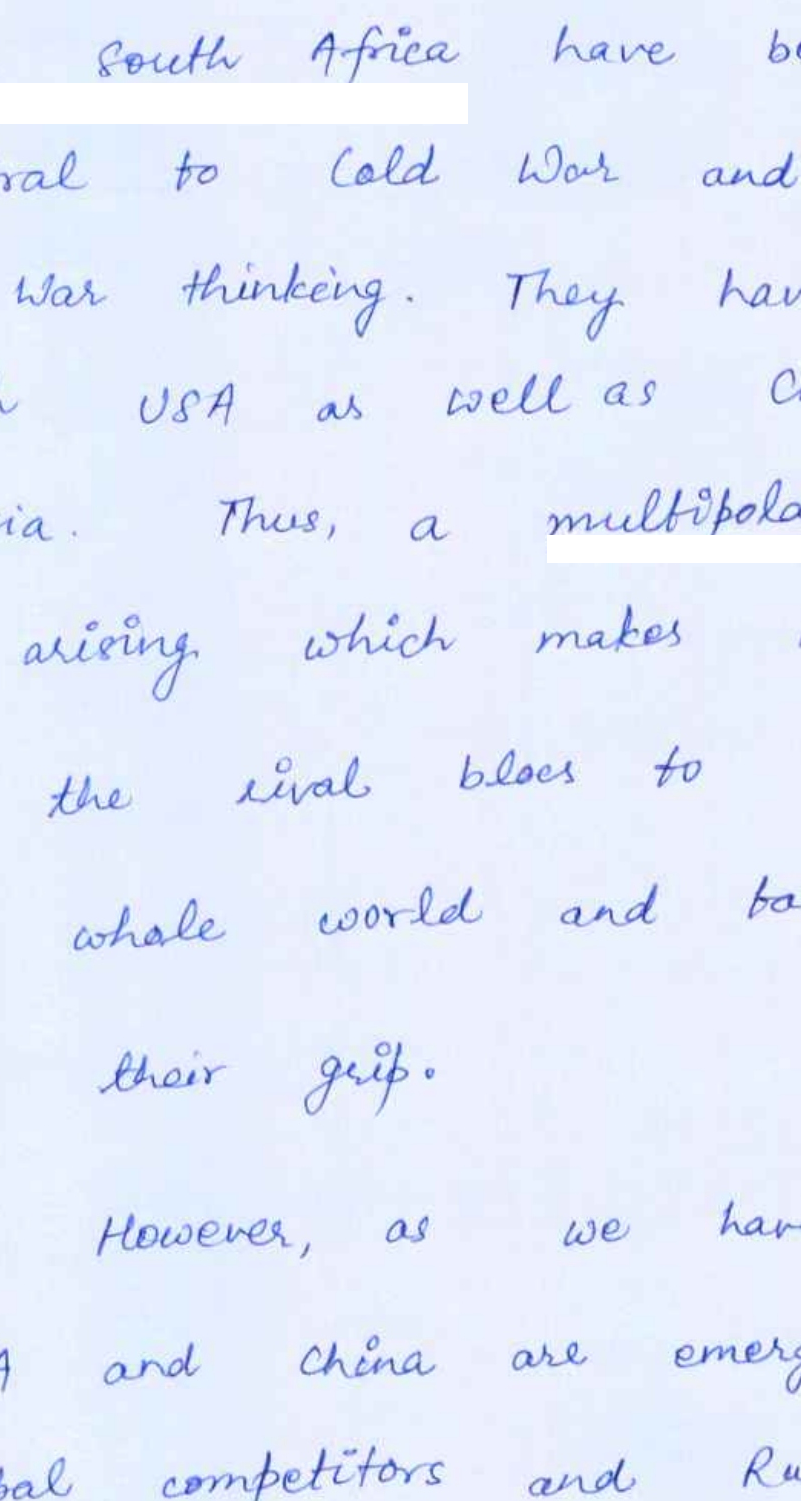 South Africa have be
ral to Cold War and
War thinking. They hav
USA as well as C
ia. Thus, a multipola
arising which makes
the rival blocs to
whole world and ta
their grip.
However, as we hav
A and China are emerg
bal competitors and Ru